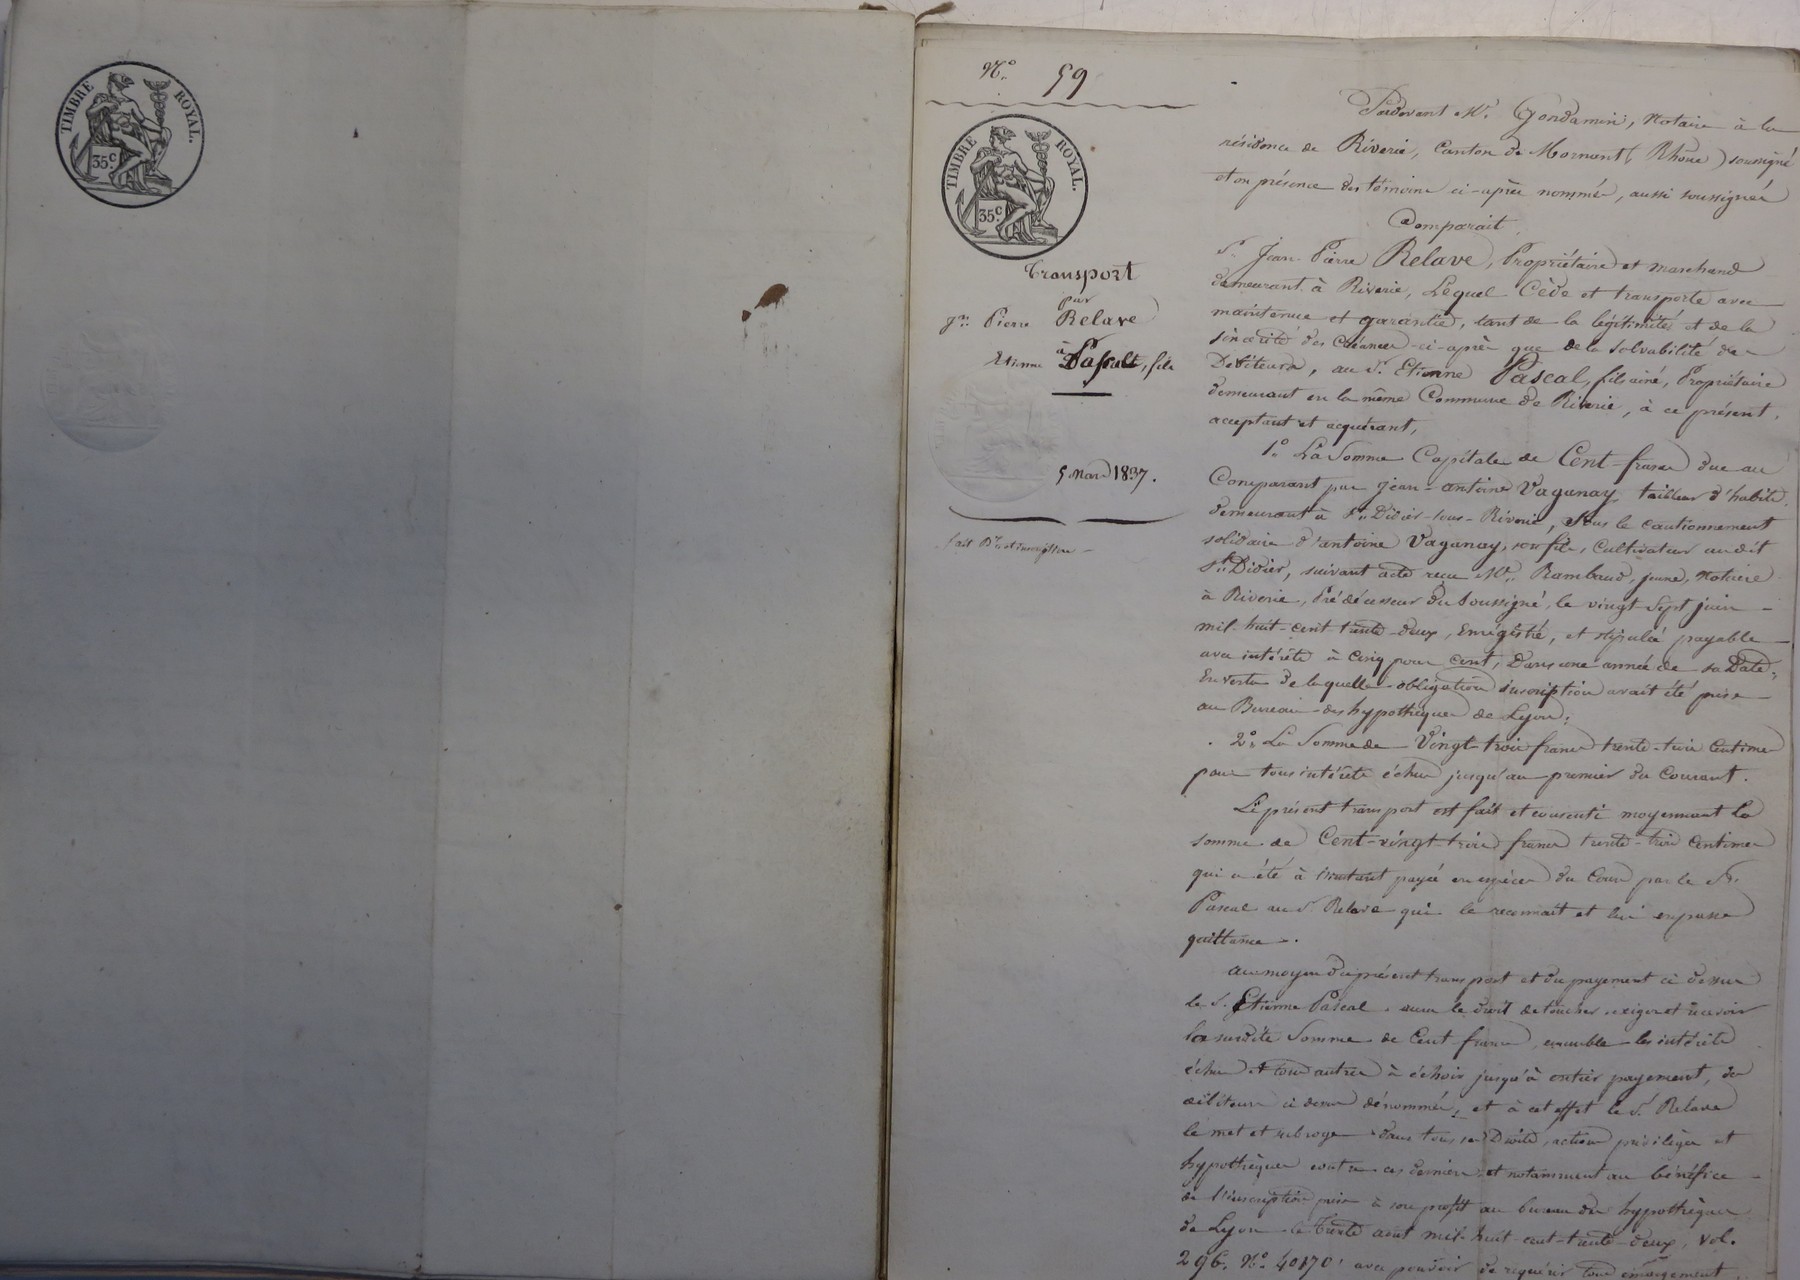 TIMBRE ROYAL.
35c
N.° 59
TIMBRE ROYAL.
35c.
Transport
par
Jn. Pierre Relave
à
Etienne Pascal, fils
5 Mars 1837.
fait Bau et inscription
Pardevant Me. Gondamin, Notaire à la
résidence de Riverie, Canton de Mornant (Rhône) soussigné
et en présence des témoins ci-après nommés, aussi soussignés
Comparait
Sr. Jean-Pierre Relave, Propriétaire et marchand
demeurant à Riverie, Lequel Cède et transporte avec
maintenue et garantie, tant de la légitimité et de la
sincérité des Créances ci-après que de la solvabilité des
Débiteurs, au Sr. Etienne Pascal, fils ainé, Propriétaire
demeurant en la même Commune de Riverie, à ce présent,
acceptant et acquérant,
1.° La Somme Capitale de Cent-francs due au
Comparant par Jean-antoine Vaganay, tailleur d'habits,
demeurant à St. Didier-sous-Riverie, Sous le cautionnement
solidaire d'antoine Vaganay, son fils, Cultivateur audit
St. Didier, suivant acte reçu Me. Rambaud, jeune, Notaire
à Riverie, Prédécesseur du Soussigné, le vingt-Sept juin
mil-huit-cent-trente-deux, Enrégistré, et stipulée payable
avec intérêts à Cinq pour cent, Dans une année de sa Date;
En vertu de laquelle obligation inscription avait été prise
au Bureau des hypothèques de Lyon;
2.° La Somme de Vingt-trois francs trente-trois Centimes
pour tous intérêts échus jusqu'au premier du Courant.
Le présent transport est fait et consenti moyennant la
somme de Cent-vingt-trois francs trente-trois Centimes
qui a été à l'instant payée en espèces du Cours par le Sr.
Pascal au Sr. Relave qui le reconnait et lui en passe
quittance.
Au moyen du présent transport et du payement ci dessus
le S. Etienne Pascal aura le droit de toucher, exiger et recevoir
la susdite Somme de Cent francs, ensemble les intérêts
échus et tous autres à échoir jusqu'à entier payement, des
débiteurs ci dessus dénommés, et à cet effet le S. Relave
le met et subroge dans tous ses Droits, actions, privilèges et
hypothèques contre ces derniers, et notamment au bénéfice
de l'inscription prise à son profit au bureau des hypothèques
de Lyon le Trente aout mil-huit-cent-trente-deux, vol.
296. N.° 40170. avec pouvoir de requérir tous émargements